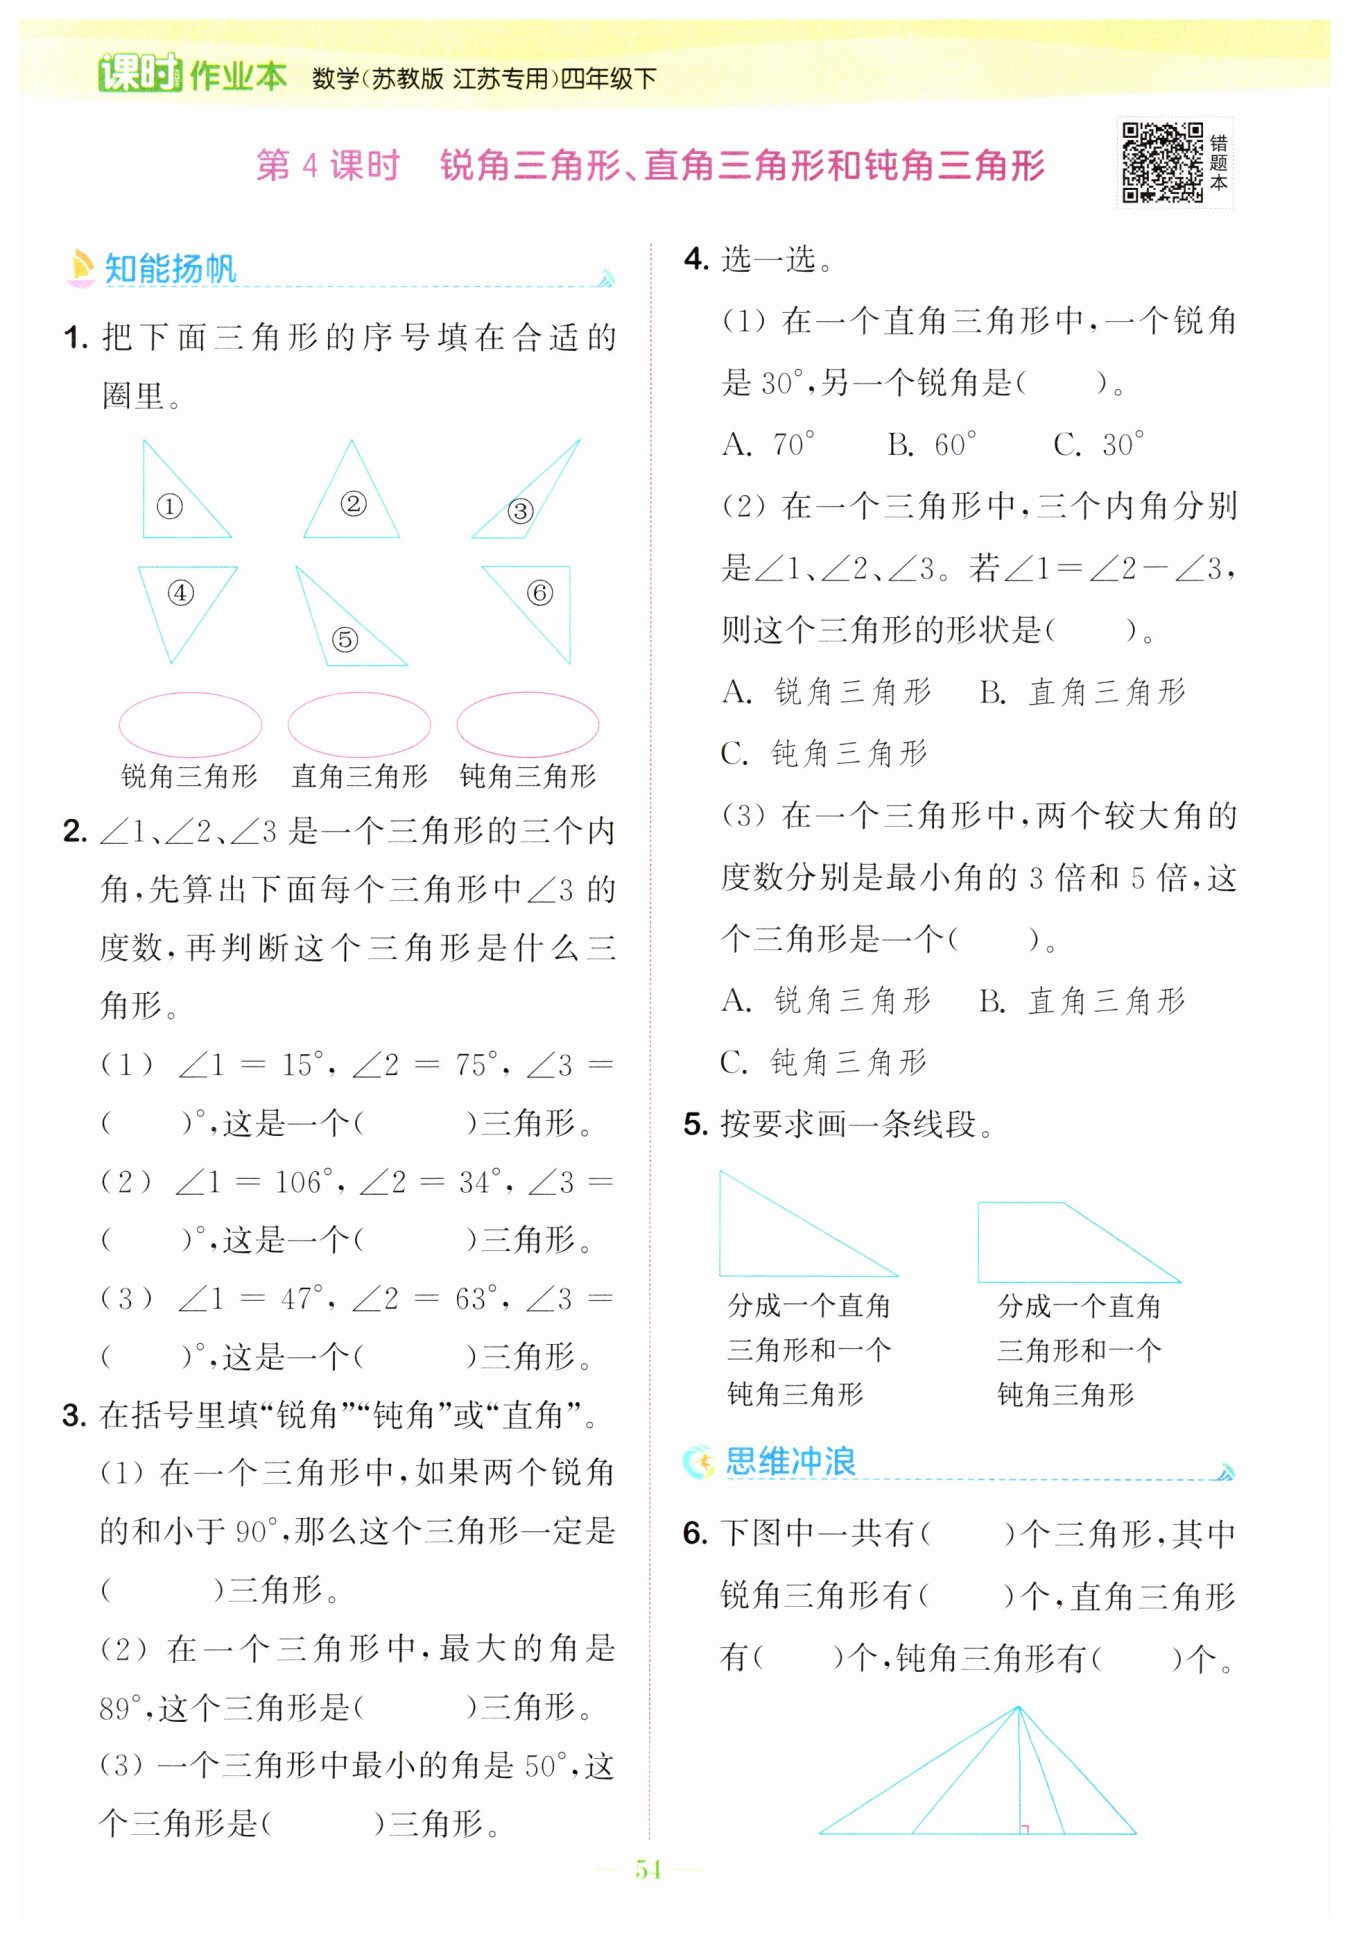 课时作业本 数学(苏教版 江苏专用)四年级下
第 4 课时 锐角三角形、直角三角形和钝角三角形
错题本
知能扬帆
1. 把下面三角形的序号填在合适的
圈里。
① ② ③
④ ⑤ ⑥
锐角三角形 直角三角形 钝角三角形
2. ∠1、∠2、∠3 是一个三角形的三个内
角,先算出下面每个三角形中∠3 的
度数,再判断这个三角形是什么三
角形。
(1) ∠1 = 15°, ∠2 = 75°, ∠3 =
( )°,这是一个( )三角形。
(2) ∠1 = 106°, ∠2 = 34°, ∠3 =
( )°,这是一个( )三角形。
(3) ∠1 = 47°, ∠2 = 63°, ∠3 =
( )°,这是一个( )三角形。
3. 在括号里填“锐角”“钝角”或“直角”。
(1) 在一个三角形中,如果两个锐角
的和小于 90°,那么这个三角形一定是
( )三角形。
(2) 在一个三角形中,最大的角是
89°,这个三角形是( )三角形。
(3) 一个三角形中最小的角是 50°,这
个三角形是( )三角形。
4. 选一选。
(1) 在一个直角三角形中,一个锐角
是 30°,另一个锐角是( )。
A. 70° B. 60° C. 30°
(2) 在一个三角形中,三个内角分别
是∠1、∠2、∠3。若∠1=∠2-∠3,
则这个三角形的形状是( )。
A. 锐角三角形 B. 直角三角形
C. 钝角三角形
(3) 在一个三角形中,两个较大角的
度数分别是最小角的 3 倍和 5 倍,这
个三角形是一个( )。
A. 锐角三角形 B. 直角三角形
C. 钝角三角形
5. 按要求画一条线段。
分成一个直角
三角形和一个
钝角三角形
分成一个直角
三角形和一个
钝角三角形
思维冲浪
6. 下图中一共有( )个三角形,其中
锐角三角形有( )个,直角三角形
有( )个,钝角三角形有( )个。
54